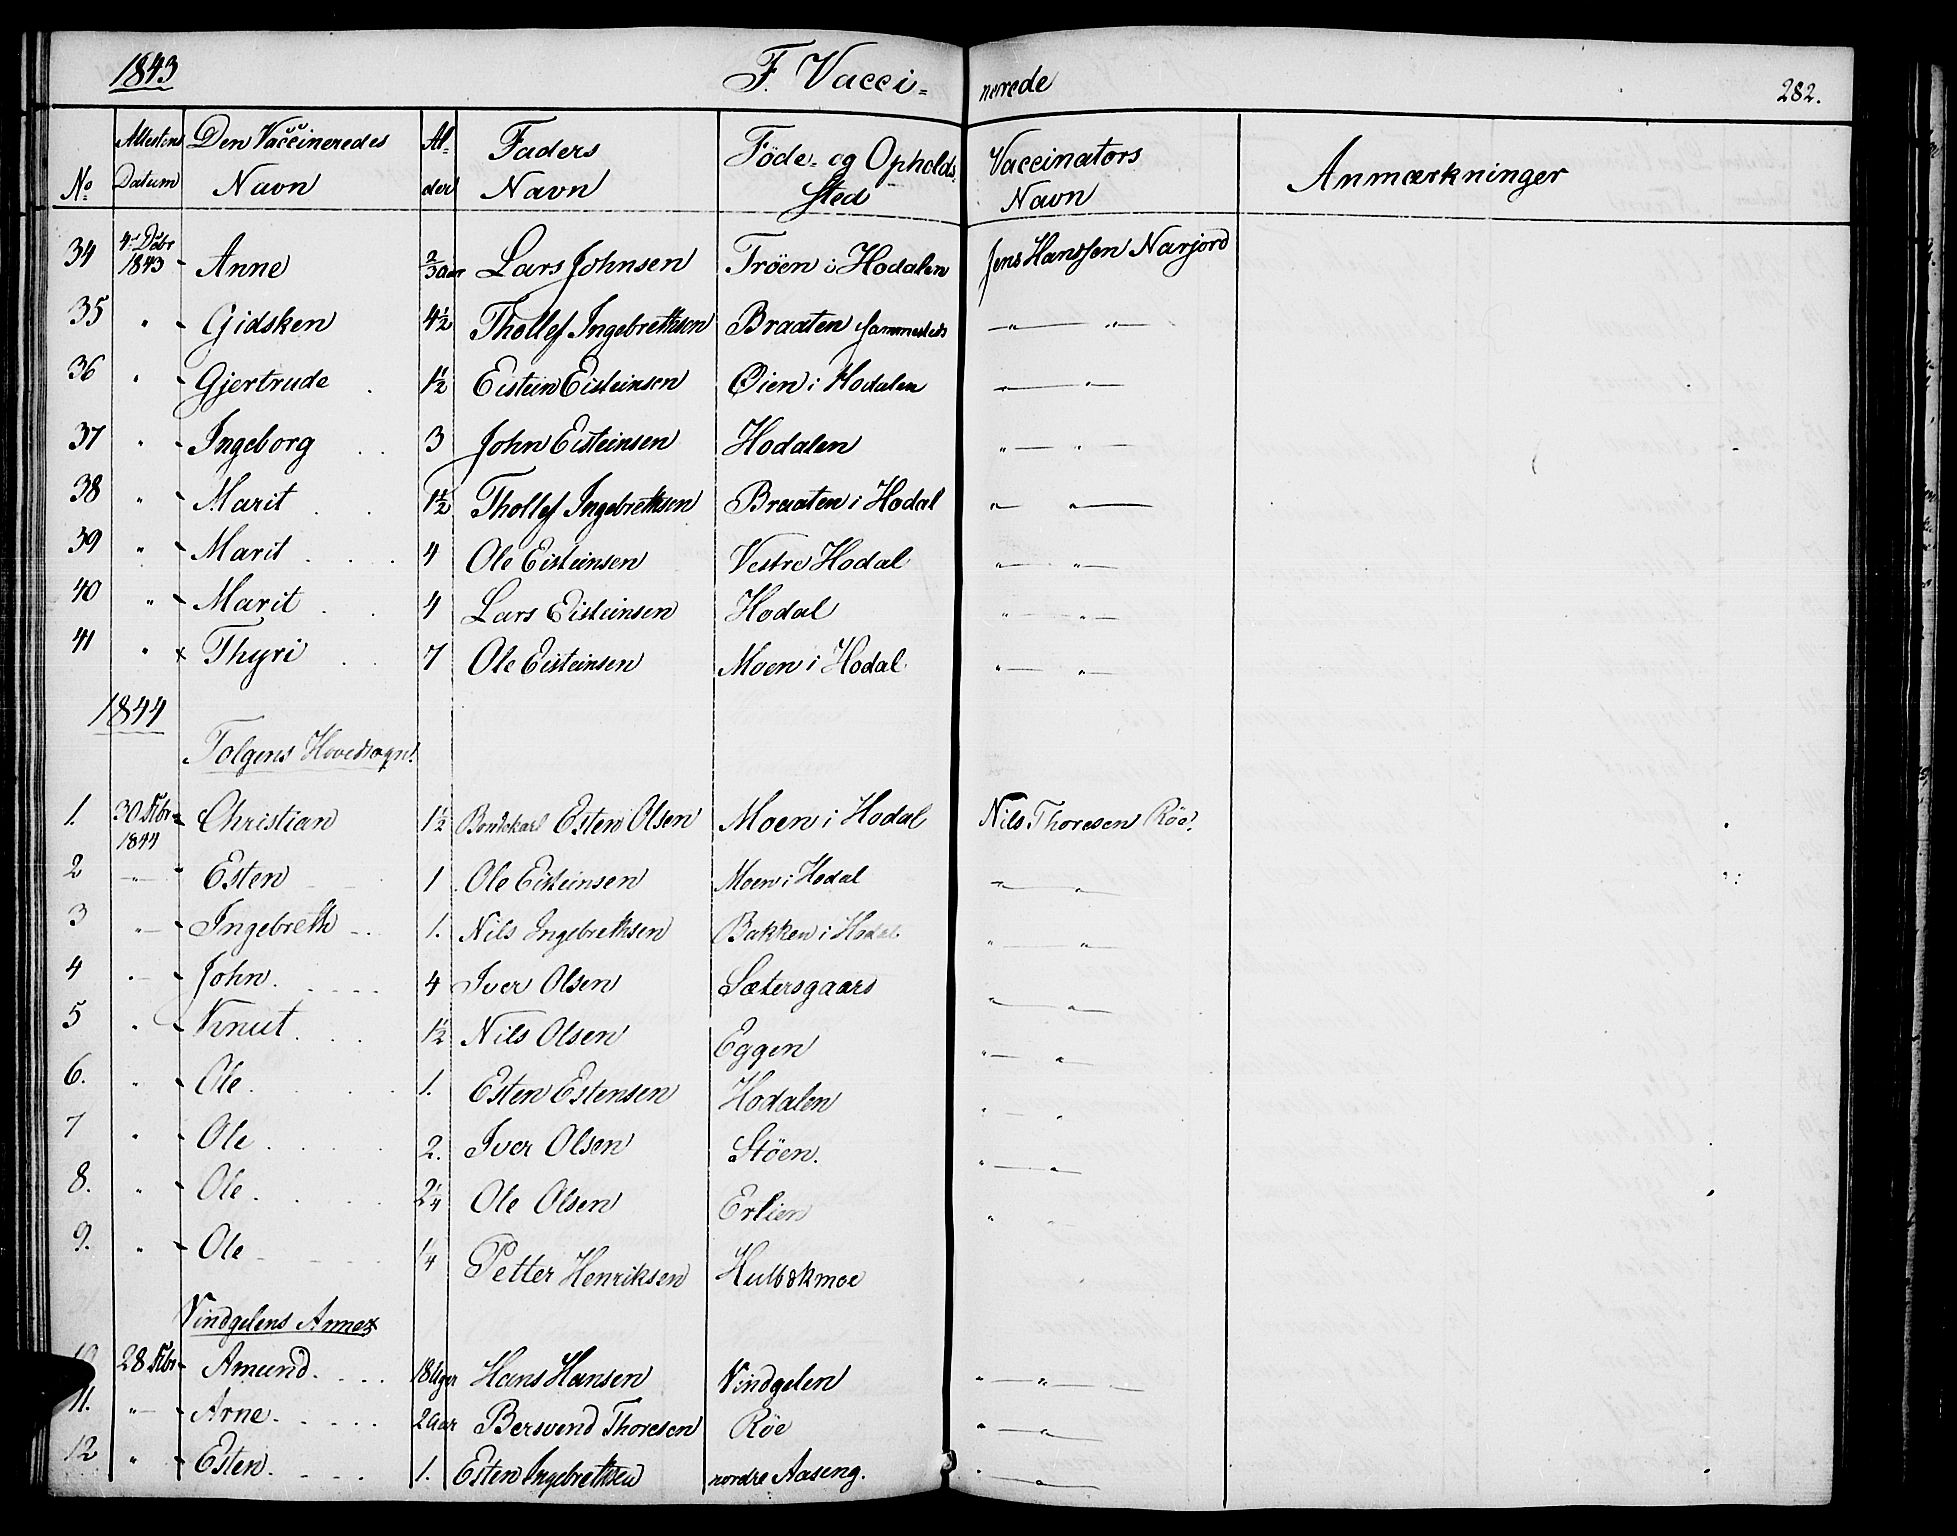 1843 F. Vacci= nerede 282.
No Attestens Datum Den Vaccineredes Navn Al- der Faders Navn Føde- og Opholds Sted Vaccinators Navn Anmærkninger
34 4de Dcbr 1843 Anne 2/3 Aar Lars Johnsen Trøen i Hodalen Jens Hanssen Narjord
35 " Gidsken 4½ Thollef Ingebrethsen Braaten sammesteds " "
36 " Gjertrude 1½ Eistein Eisteinsen Øien i Hodalen " "
37 " Ingeborg 3 John Eisteinsen Hodalen " "
38 " Marit 1½ Thollef Ingebrethsen Braaten i Hodal " "
39 " Marit 4 Ole Eisteinsen Vestre Hodal " "
40 " Marit 4 Lars Eisteinsen Hodal " "
41 " x Thyri 7 Ole Eisteinsen Moen i Hodal " "
1844
Tolgens Hovedsogn
1. 30 Febr 1844 Christian 1½ Esten Olsen Moen i Hodal Nils Thoresen Røe
2 " Esten 1 Ole Eisteinsen Moen i Hodal " "
3 " Ingebreth 1. Nils Ingebrethsen Bakken i Hodal " "
4 " John 4 Iver Olsen Sætersgaard " "
5 " Knut 1½ Nils Olsen Eggen " "
6. " Ole 1. Esten Estensen Hodalen " "
7 " Ole 2. Iver Olsen Støen. " "
8. " Ole 2¼ Ole Olsen Erlien " "
9. " Ole ¼ Petter Henriksen Hulbækmoe
Vindgelens Annex
10 28 Febr Amund 18 Uger Hans Hansen Vindgelen " "
11. " Arne 2 Aar Bersvend Thoresen Røe " "
12 " Esten 1. Esten Ingebrethsen nordre Aaseng. " "